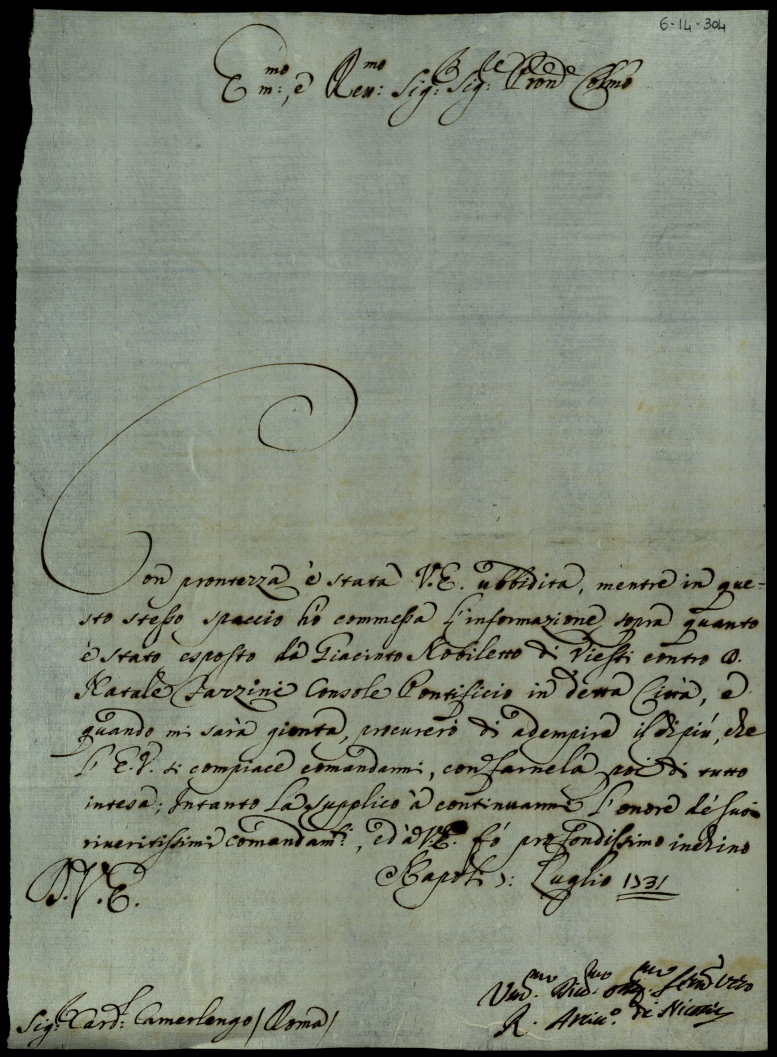 6-14-304
Em:mo, e Rev:mo Sig:r Sig:r Pron.e Colmo
Con prontezza è stata V.E. ubbidita, mentre in que-
sto stesso spaccio hò commessa l'informazione sopra quanto
è stato esposto dà Giacinto Nobiletto di Viesti contro D.
Natale Farzini Console Pontificio in detta Città, e
quando mi sarà gionta, procurerò di adempire il di più, che
l'E.V. si compiace comandarmi, con farnela poi di tutto
intesa; Intanto La supplico à continuarmi l'onore dé suoi
riveritissimi comandam.ti, ed à V.E. fò profondissimo inchino
Napoli 7: Luglio 1731
D.V.E.
Um.mo Div.mo Obb.mo Ser.re vero
R. Arciv.o di
Sig.r Card.l Camerlengo / Roma /